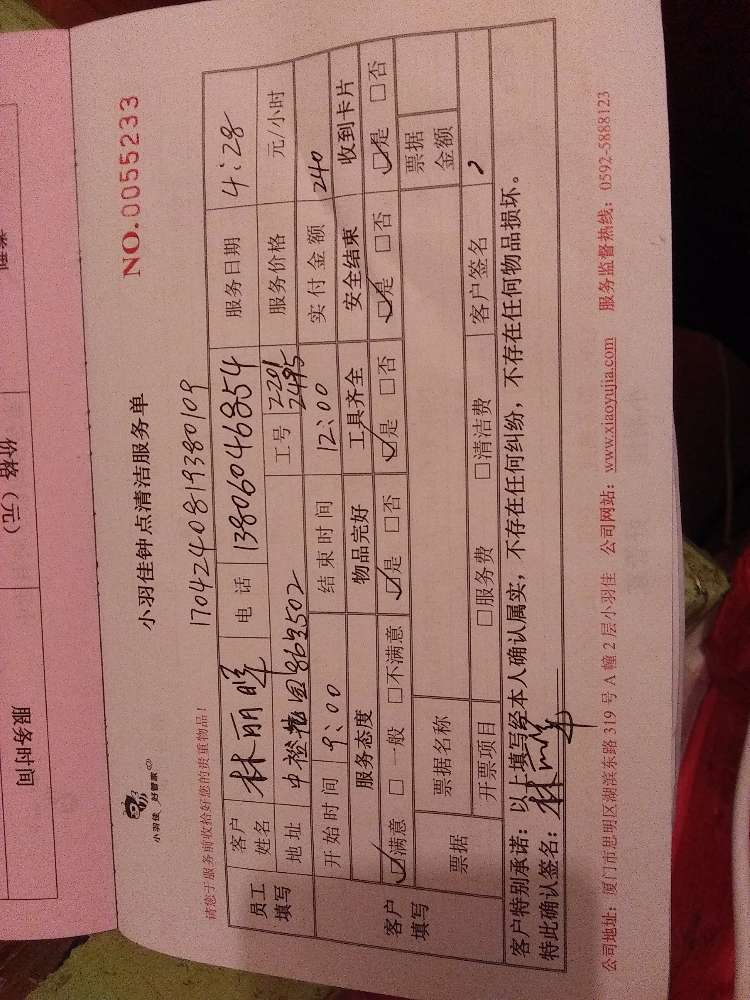 小羽佳钟点清洁服务单
NO.0055233
小羽佳 好管家
请您于服务前收拾好您的贵重物品!
1704240819380109
员工填写
客户姓名 林丽 电话 13806046854 服务日期 4:28
地址 工号 2201 2495 服务价格 元/小时
开始时间 9:00 结束时间 12:00 实付金额 240
客户填写
服务态度 物品完好 工具齐全 安全结束 收到卡片
☑满意 □一般 □不满意 ☑是 □否 ☑是 □否 ☑是 □否 ☑是 □否
票据 票据名称 票据金额
开票项目 □服务费 □清洁费 客户签名
客户特别承诺:以上填写经本人确认属实,不存在任何纠纷,不存在任何物品损坏。
特此确认签名:林
公司地址:厦门市思明区湖滨东路319号A幢2层小羽佳 公司网站:www.xiaoyujia.com 服务监督热线:0592-5888123
服务时间
价格(元)